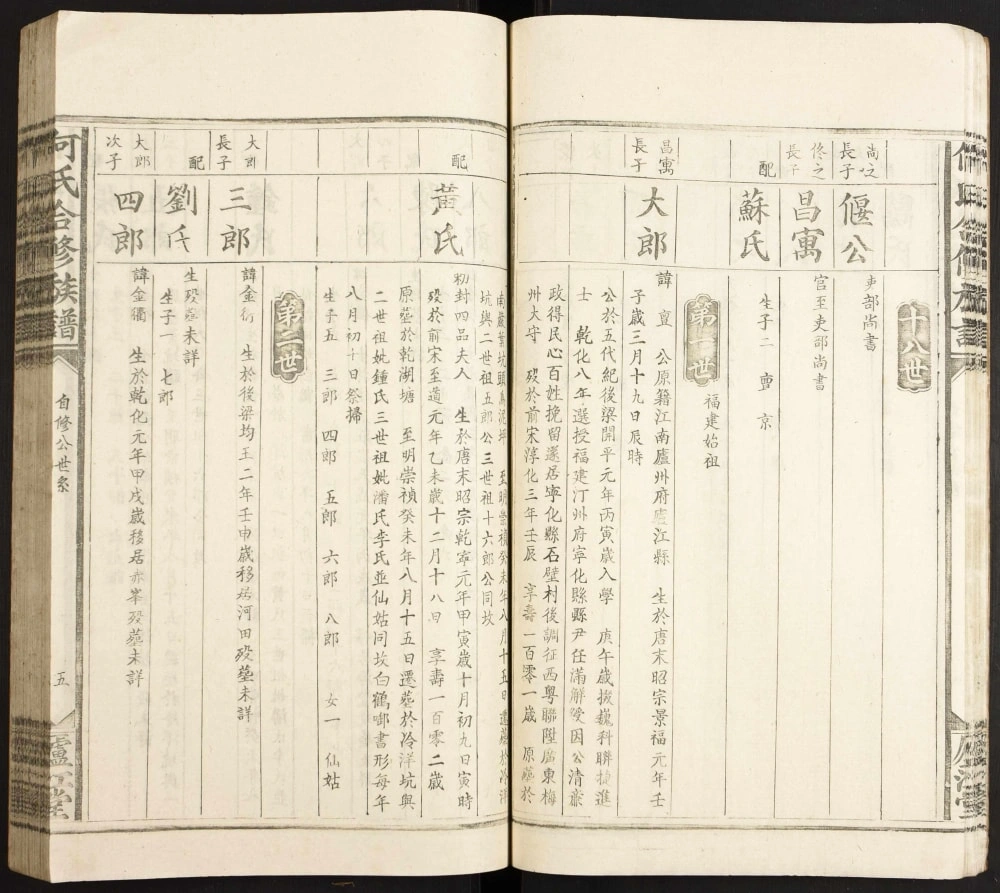 十八世
尚之
長子
偃公
吏部尚書
佟之
長子
昌寓
官至吏部尚書
配
蘇氏
生子二 亶 京
第一世
福建始祖
昌寓
長子
大郎
諱亶 公原籍江南廬州府廬江縣 生於唐末昭宗景福元年壬
子歲三月十九日辰時
公於五代紀後梁開平元年丙寅歲入學 庚午歲拔巍科聯捷進
士 乾化八年選授福建汀州府寧化縣縣尹任滿解受因公清廉
政得民心百姓挽留遂居寧化縣石壁村後調征西粵聯陞廣東梅
州大守 歿於前宋淳化三年壬辰 享壽一百零一歲 原葬於
至明崇禎癸未年八月十五日遷葬於冷洋
坑與二世祖五郎公三世祖十六郎公同坟
配
黃氏
初封四品夫人 生於唐末昭宗乾寧元年甲寅歲十月初九日寅時
歿於前宋至道元年乙未歲十二月十八日 享壽一百零二歲
原葬於乾湖塘 至明崇禎癸未年八月十五日遷葬於冷洋坑與
二世祖妣鍾氏三世祖妣潘氏李氏並仙姑同坟白鶴啣書形每年
八月初十日祭掃
生子五 三郎 四郎 五郎 六郎 八郎 女一 仙姑
第二世
大郎
長子
三郎
諱金衍 生於後梁均王二年壬申歲移居河田歿塟未詳
配
劉氏
生歿塟未詳
生子一 七郎
大郎
次子
四郎
諱金獨 生於乾化元年甲戌歲移居赤峯歿塟未詳
何氏合修族譜
自修公世系
五
廬江堂